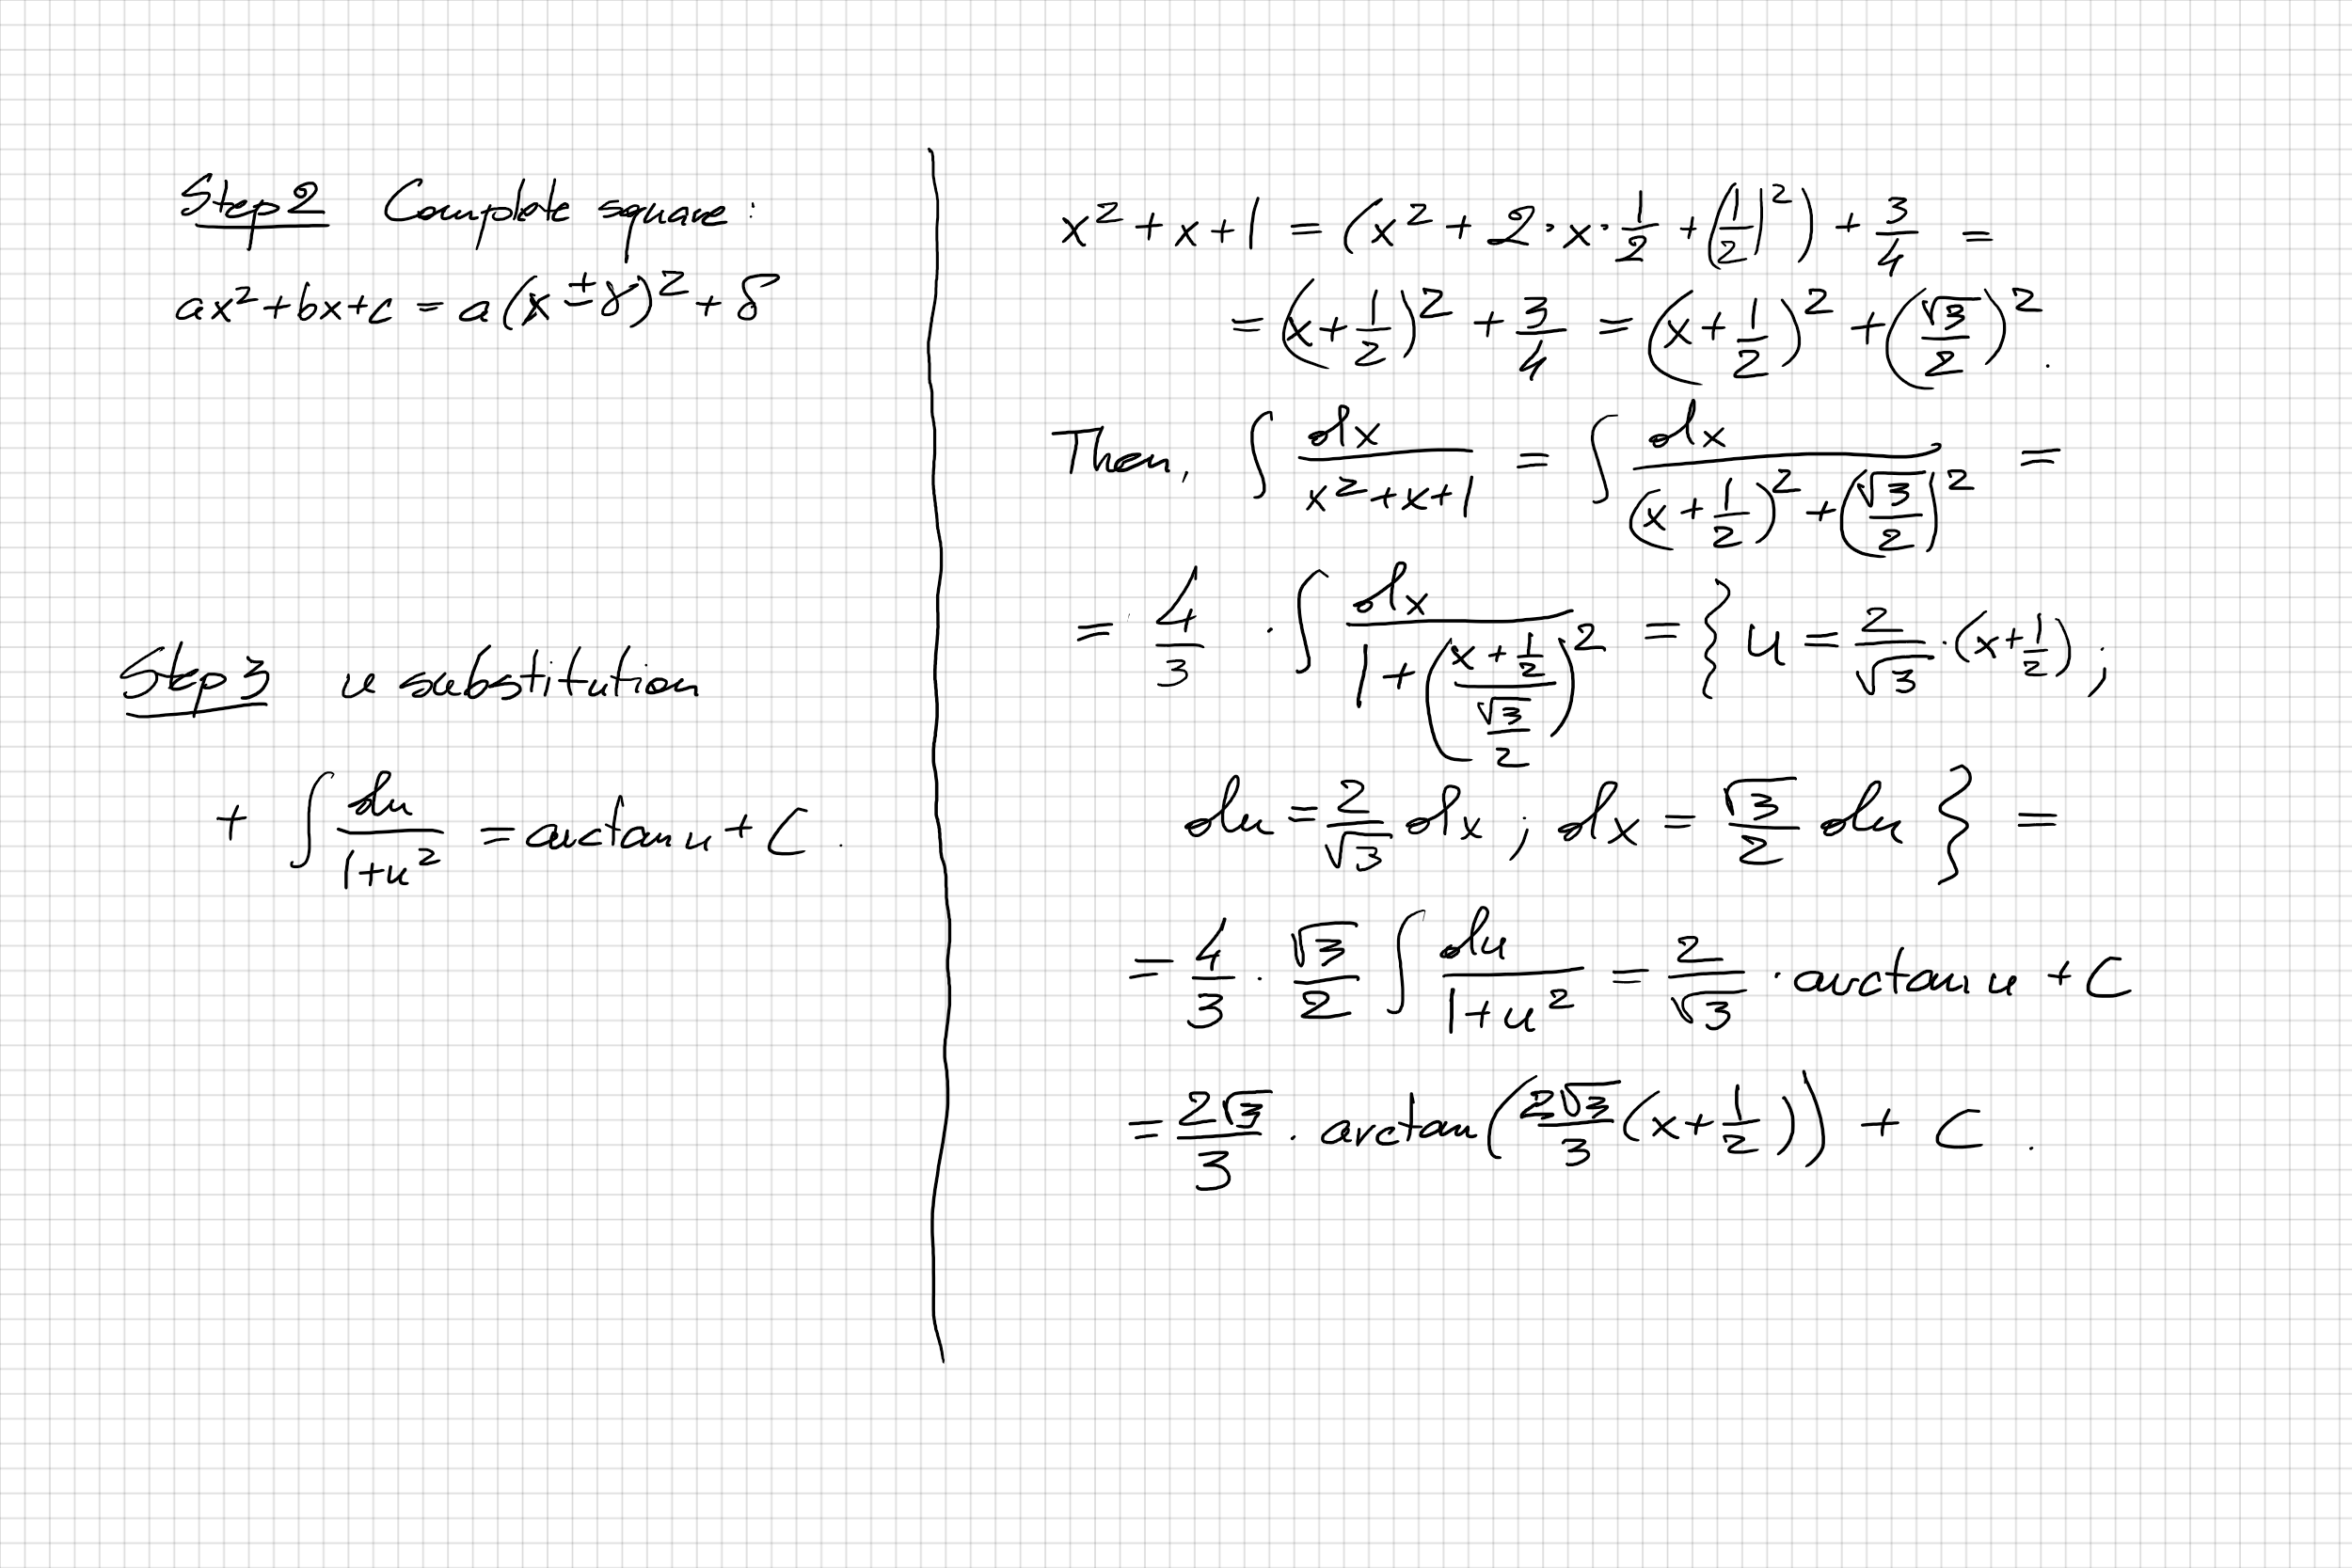 Step 2 Complete square:
ax² + bx + c = a(x ± γ)² + δ
Step 3 u substitution
+ ∫ du/(1+u²) = arctan u + C.
x² + x + 1 = (x² + 2·x·1/2 + (1/2)²) + 3/4 =
= (x + 1/2)² + 3/4 = (x + 1/2)² + (√3/2)².
Then, ∫ dx/(x² + x + 1) = ∫ dx/((x + 1/2)² + (√3/2)²) =
= 4/3 · ∫ dx/(1 + ((x + 1/2)/(√3/2))²) = { u = 2/√3 · (x + 1/2);
du = 2/√3 dx; dx = √3/2 du } =
= 4/3 · √3/2 ∫ du/(1+u²) = 2/√3 · arctan u + C
= 2√3/3 · arctan(2√3/3 (x + 1/2)) + C.